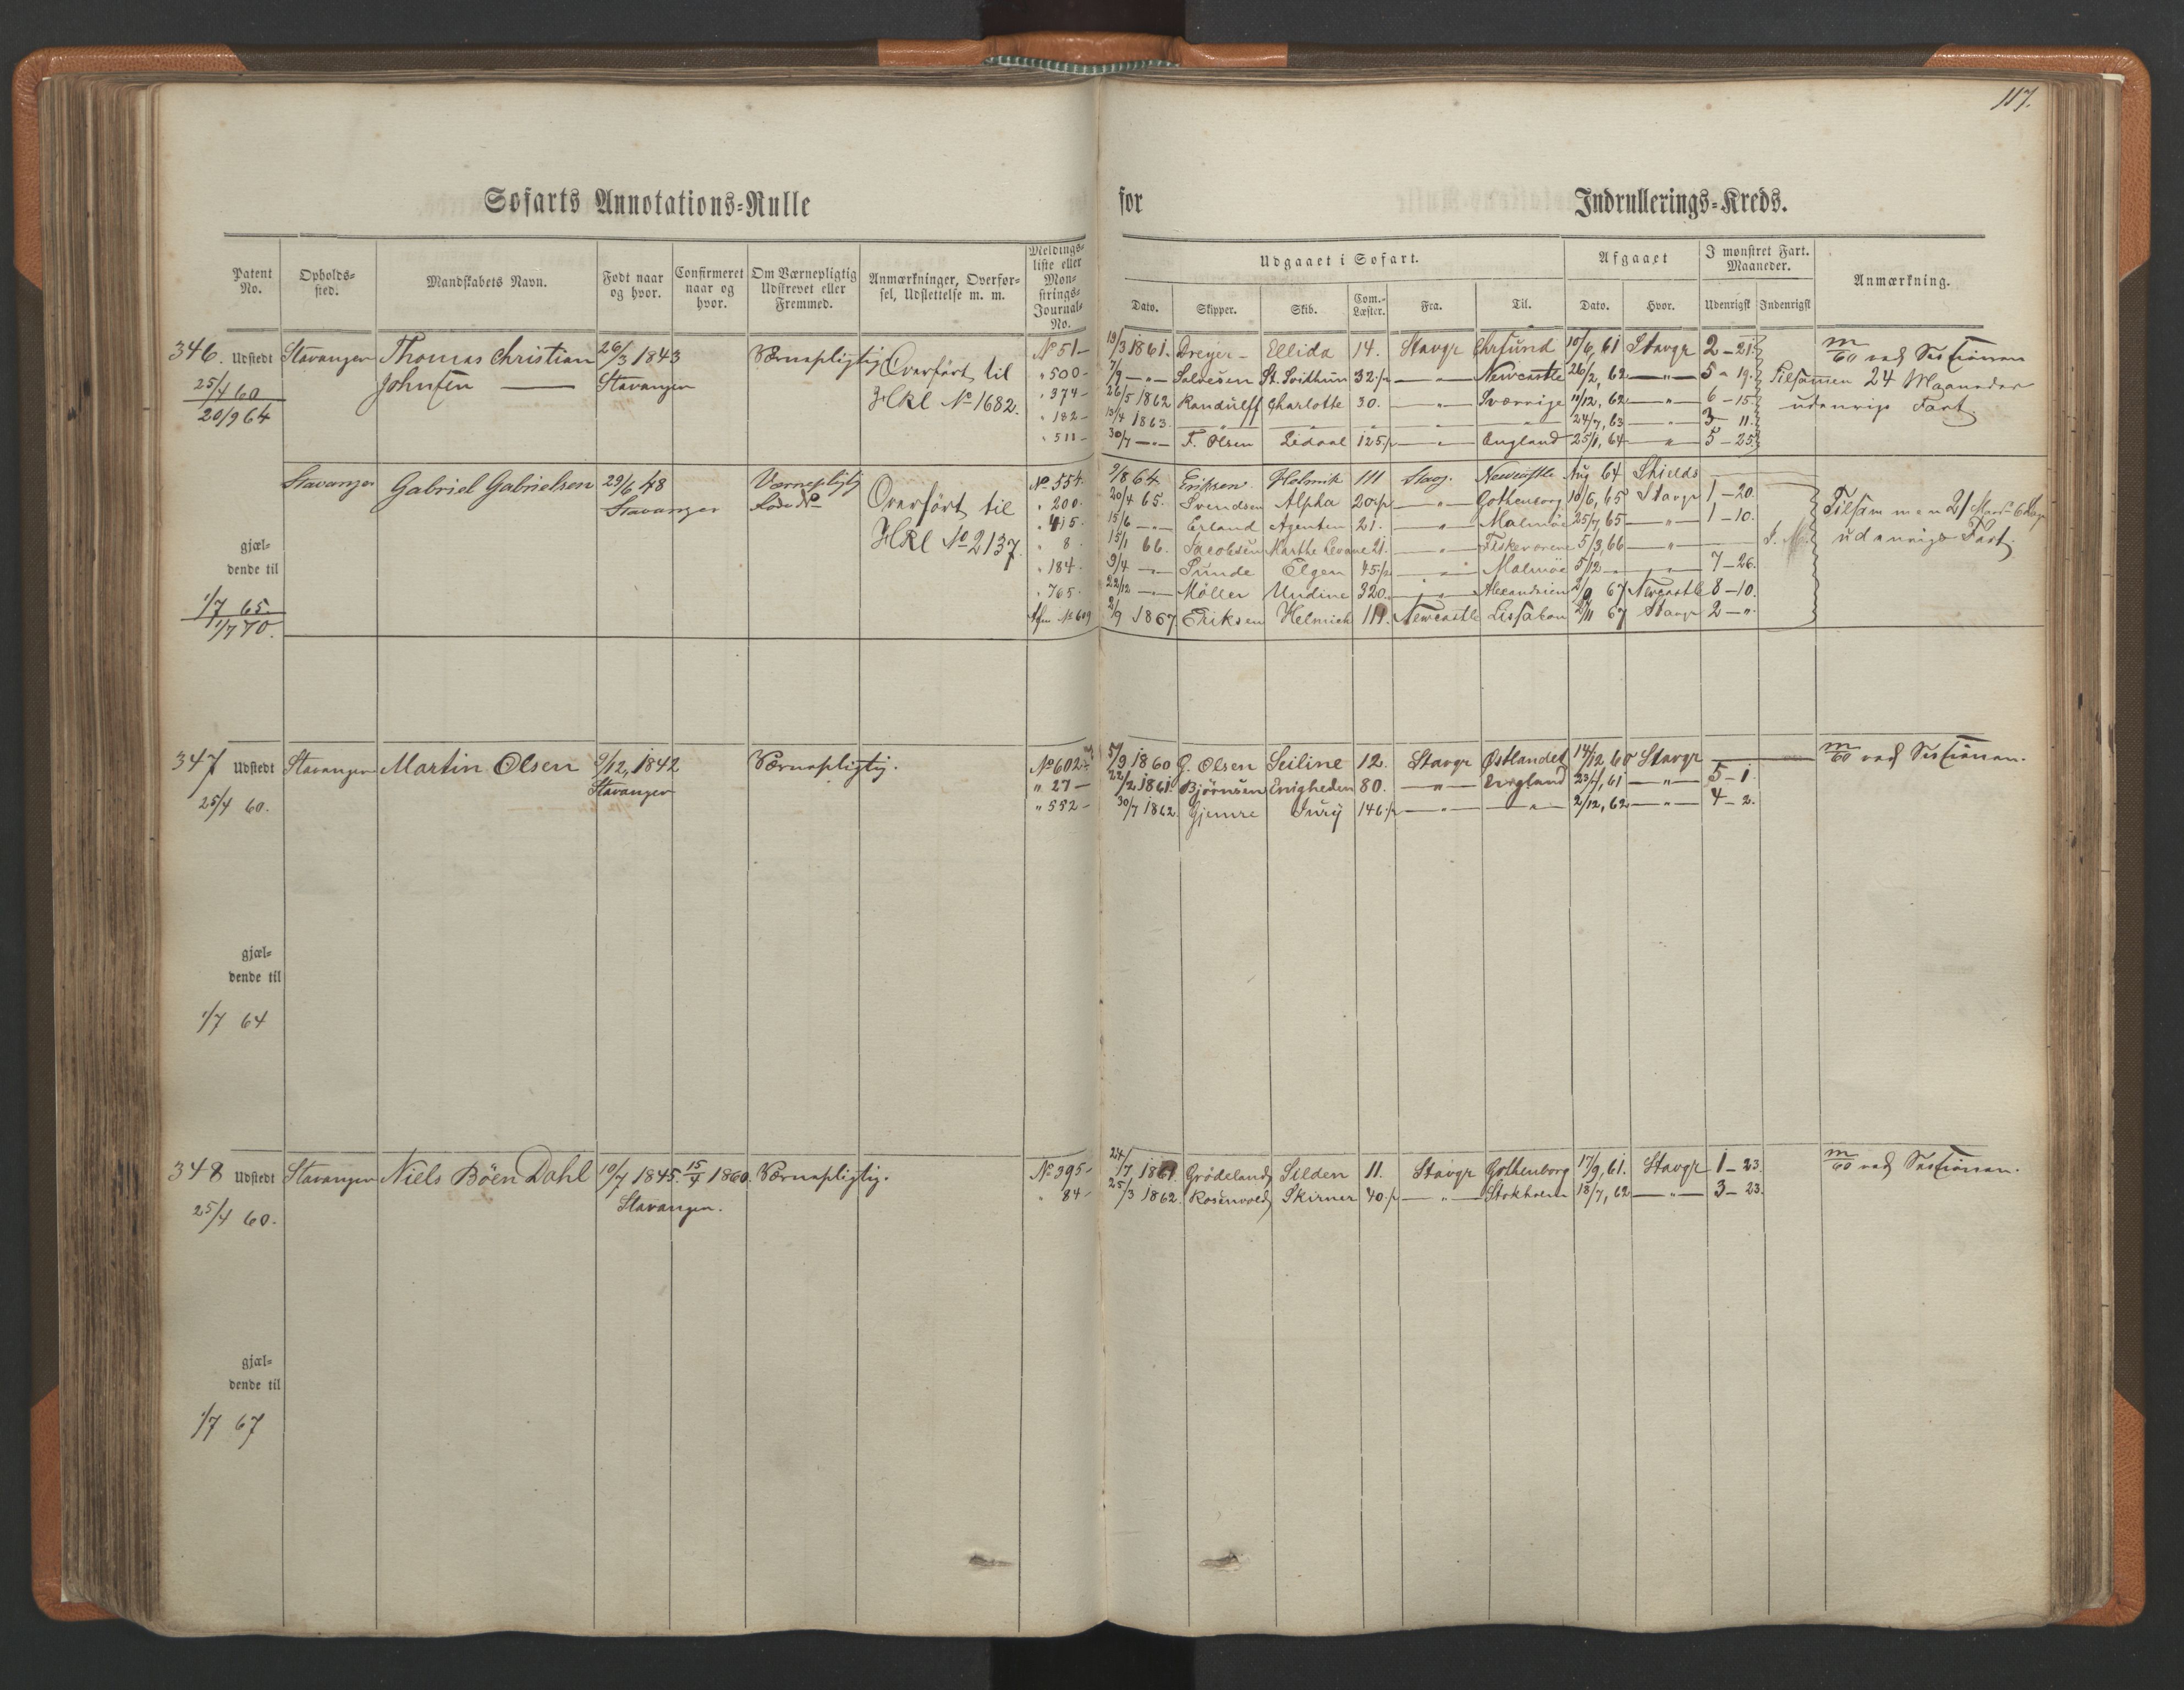 117.
Søfarts Annotations-Rulle for Indrullerings-Kreds.
Patent No. Opholds-sted. Mandskabets Navn. Født naar og hvor. Confirmeret naar og hvor. Om Værnepligtig Udskrevet eller Fremmed. Anmærkninger, Overførsel, Udslettelse m. m. Meldings-liste eller Mønstrings-Journal-No.
Udgaaet i Søfart. Afgaaet I mønstret Fart. Maaneder. Anmærkning.
Dato. Skipper. Skib. Com.-Læster. Fra. Til. Dato. Hvor. Udenrigsk Indenrigsk
346. Udstedt Stavanger Thomas Christian 26/3 1843 Værnepligtig Overført til No 51 — 19/3 1861. Dreyer — Ellida 14. Stavgr Chrsund 10/6, 61 Stavgr 2 — 21. m/60 ved Sessionen
25/4 60 Johnsen — Stavanger Hkl No 1682. " 500 — 7/9 — " — Salvesen St. Svidhun 32 — " — Newcastle 26/2, 62 — " — 5 " 19. Tilsammen 24 Maaneder
20/9 64 " 374 — 26/5 1862 Randulff Charlotte 30. — " — Sverrige 11/12, 62 — " — 6 — 15. udenrigs Fart.
" 182 — 13/4 1863. — " — — " — — " — — " — 24/7, 63 — " — 3 — 11.
" 511 — 30/7 — " — F. Olsen Ledaal 125 — " — England 25/1, 64 — " — 5 — 25.
Stavanger Gabriel Gabrielsen 29/6 48 Værnepligtig Overført til No 554. 9/8 64 Eriksen Helmik 111 Stavg. Newcastle Aug 64 Shields
Stavanger Hkl No 2137. " 200. 20/4 65. Svendsen Alpha 20 — " — Gothenborg 10/6, 65 Stavgr 1 — 20. Tilsammen 21
" 415. 15/6 — " — Erland Agenten 21. — " — Malmöe 25/7, 65 — " — 1 — 10. udenrigs Fart.
gjæl- " 8. 15/1 66. Jacobsen Marthe Levane 21. — " — Fiskevarene 5/3, 66 — " —
dende til " 184. 9/4 — " — Sunde Elgen 45 — " — Malmöe 5/12 — " — 7 — 26.
1/7 65. " 765. 22/12 — " — Möller Undine 320. — " — Alexandrien 67 Newcastle 8 — 10.
1/7 70. No 609 2/9 1867. Eriksen Helmich 111. Newcastle Lissabon 2/11 67 Stavgr 2 — ".
347 Udstedt Stavanger Martin Olsen 9/12, 1842 Værnepligtig. No 602 5/9 1860 O. Olsen Seiline 12. Stavgr Østlandet 14/12, 60 Stavgr m/60 ved Sessionen.
25/4 60. Stavanger " 27 — 22/2 1861. Bjørnsen Enigheden 80. — " — England 23/7, 61 — " — 5 — 1.
" 552 — 30/7 1862. Gjemre Jury 146 — " — — " — 2/12, 62 — " — 4 — 2.
gjæl-
dende til
1/7 64
348 Udstedt Stavanger Niels Böen Dahl 10/7 1845. 15/4 1860. Værnepligtig. No 395 — 24/7 1861 Grödeland Silden 11. Stavgr Gothenborg 17/9, 61. Stavgr 1 — 23. m/60 ved Sessionen.
25/4 60. Stavanger. " 84 — 25/3 1862. Rosenvold Skirner 40 — " — Stokholm 18/7, 62 — " — 3 — 23.
gjæl-
dende til
1/7 67